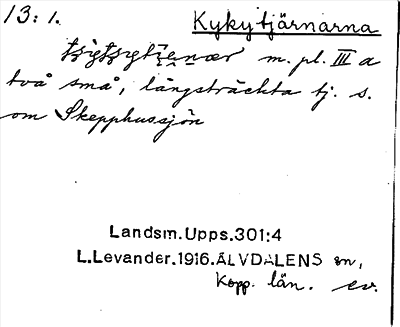 13: 1.
Kykytjärnarna
m. pl. III a
två små, långsträckta tj. s.
om Skepphussjön
Landsm.Upps.301:4
L.Levander.1916.ÄLVDALENS sn,
Kopp. län. ev.